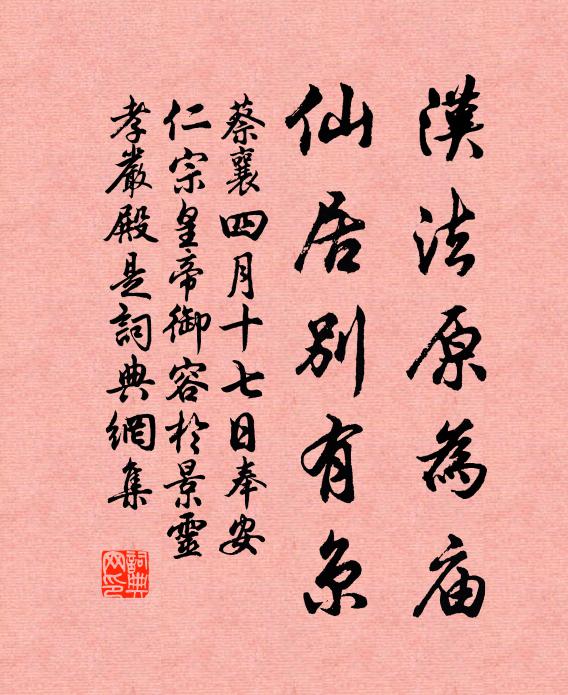 漢法原為庙
仙居别有京
蔡襄四月十七日奉安
仁宗皇帝御容於景靈
孝嚴殿是詞典網集
詞典
网印